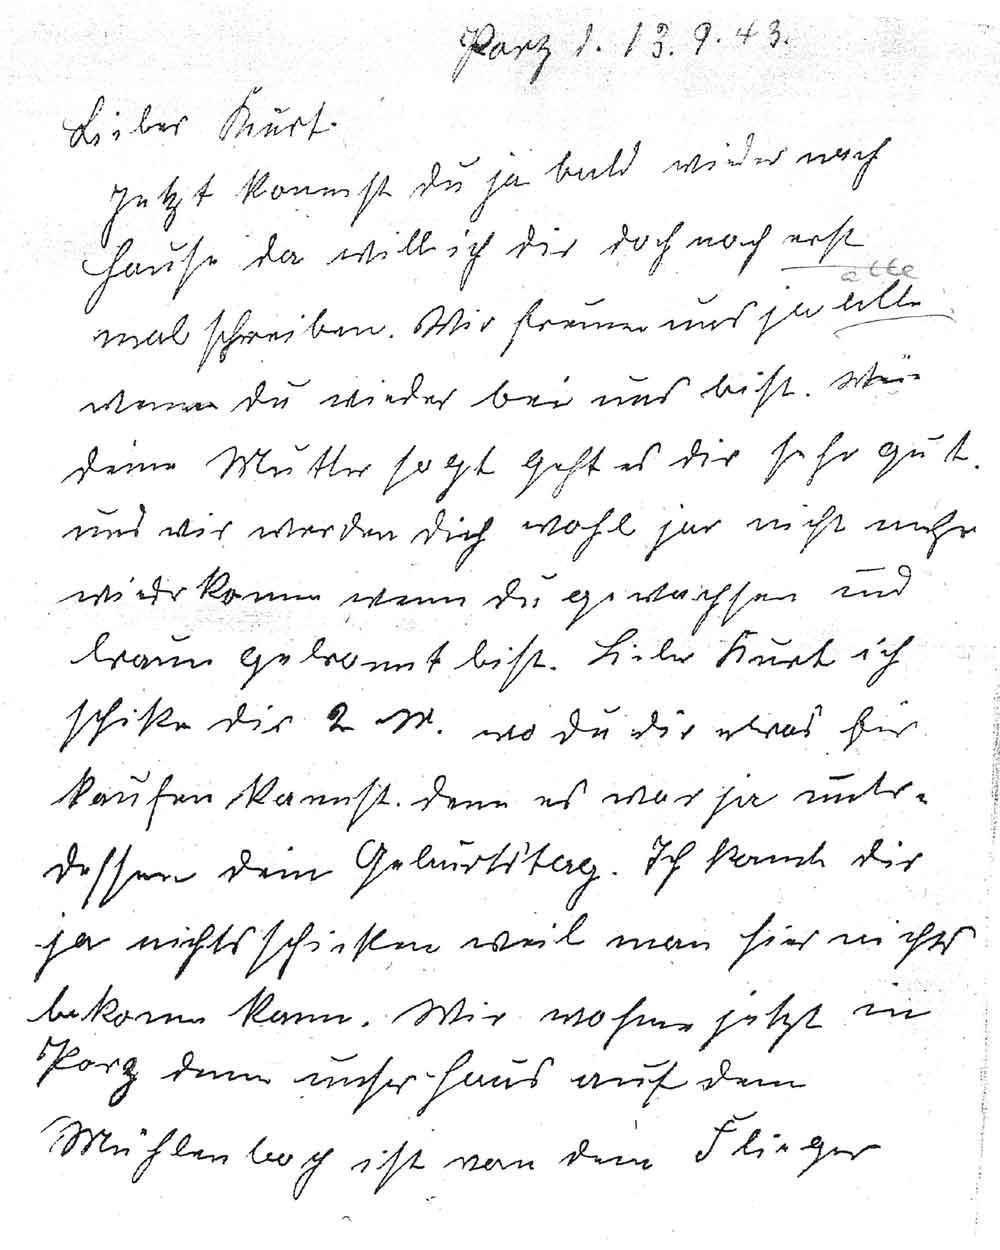 Porz d. 13.9.43.
Lieber Kurt.
Jetzt kommst du ja bald wieder nach
hause da will ich dir doch noch erst
alle
mal schreiben. Wir freuen uns ja alle
wenn du wieder bei uns bist. Wie
deine Mutter sagt geht es dir sehr gut.
und wir werden dich wohl jar nicht mehr
wiedr kenne wenn du gewachsen und
braun gebrannt bist. Lieber Kurt ich
schike dir 2 M. wo du dir etwas für
kaufen kannst. denn es war ja unter-
dessen dein Geburtstag. Ich kannte dir
ja nichts schicken weil man hier nichts
bekomm kann. Wir wohne jetzt in
Porz denn unser haus auf dem
Mühlenbach ist von dem Flieger